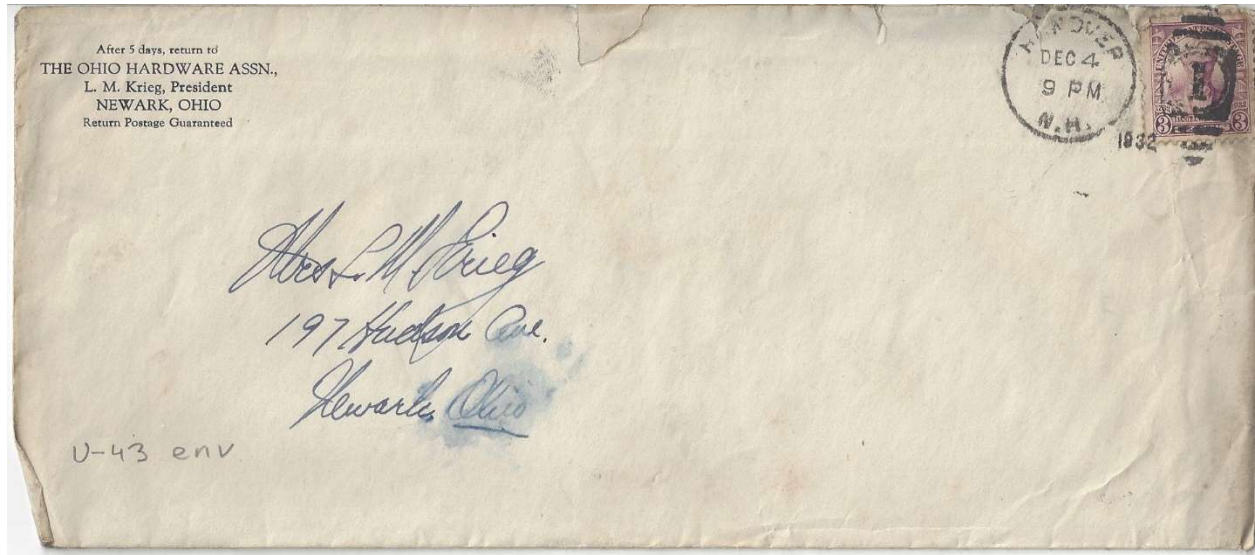 After 5 days, return to
THE OHIO HARDWARE ASSN.,
L. M. Krieg, President
NEWARK, OHIO
Return Postage Guaranteed
HANOVER
DEC 4
9 PM
N.H.
1932
1
3 3
Mrs L. M. Krieg
197 Hudson Ave.
Newark, Ohio
U-43 env